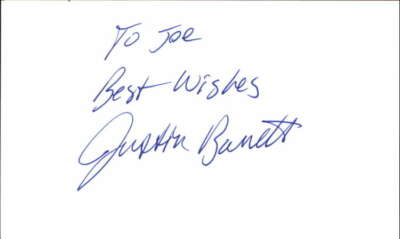 To Joe
Best Wishes
Justin Barrett